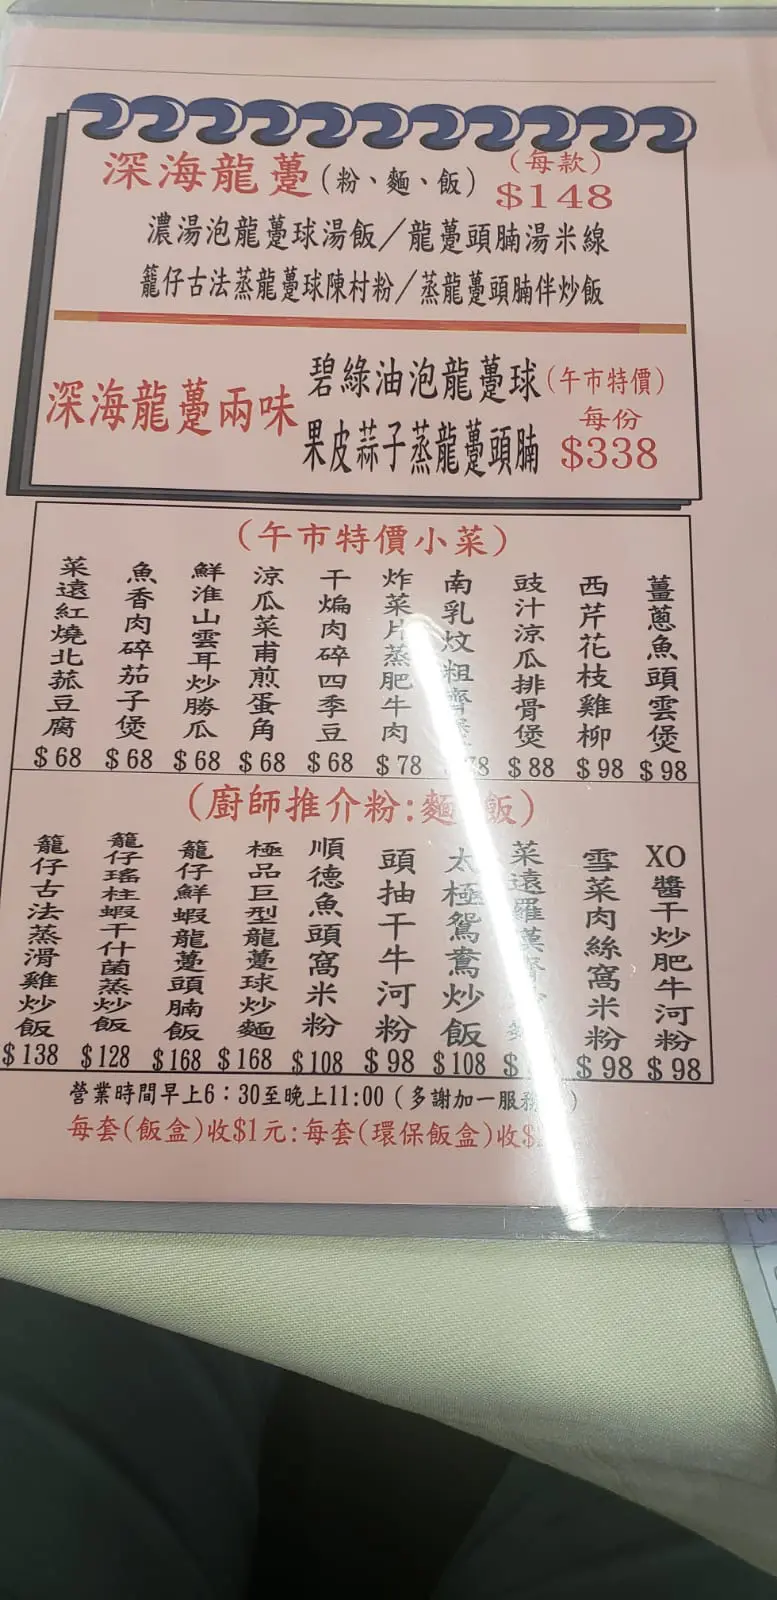 深海龍躉(粉、麵、飯)
(每款)
$148
濃湯泡龍躉球湯飯/龍躉頭腩湯米線
籠仔古法蒸龍躉球陳村粉/蒸龍躉頭腩伴炒飯
深海龍躉兩味
碧綠油泡龍躉球
果皮蒜子蒸龍躉頭腩
(午市特價)
每份
$338
(午市特價小菜)
薑蔥魚頭雲煲
$98
西芹花枝雞柳
$98
豉汁涼瓜排骨煲
$88
南乳炆粗齋
炸菜片蒸肥牛肉
$78
干煸肉碎四季豆
$68
涼瓜菜甫煎蛋角
$68
鮮淮山雲耳炒勝瓜
$68
魚香肉碎茄子煲
$68
菜遠紅燒北菰豆腐
$68
(廚師推介粉:麵 飯)
XO醬干炒肥牛河粉
$98
雪菜肉絲窩米粉
$98
菜遠羅漢齋 麵
太極鴛鴦炒飯
$108
頭抽干牛河粉
$98
順德魚頭窩米粉
$108
極品巨型龍躉球炒麵
$168
籠仔鮮蝦龍躉頭腩飯
$168
籠仔瑤柱蝦干什菌蒸炒飯
$128
籠仔古法蒸滑雞炒飯
$138
營業時間早上6:30至晚上11:00(多謝加一服務 )
每套(飯盒)收$1元:每套(環保飯盒)收$